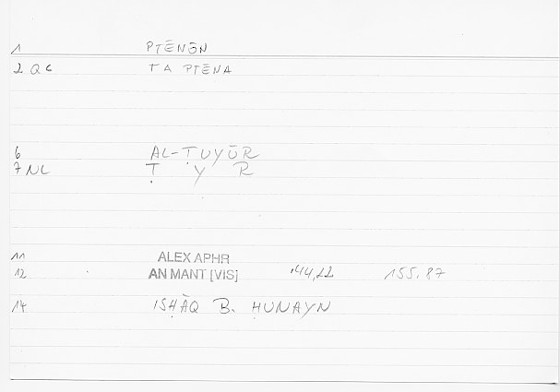 1 PTĒNŌN
2 QC TA PTĒNA
6 AL-ṬUYŪR
7 NL Ṭ Y R
11 ALEX APHR
12 AN MANT [VIS] 144,22 155.87
14 ISḤĀQ B. ḤUNAYN